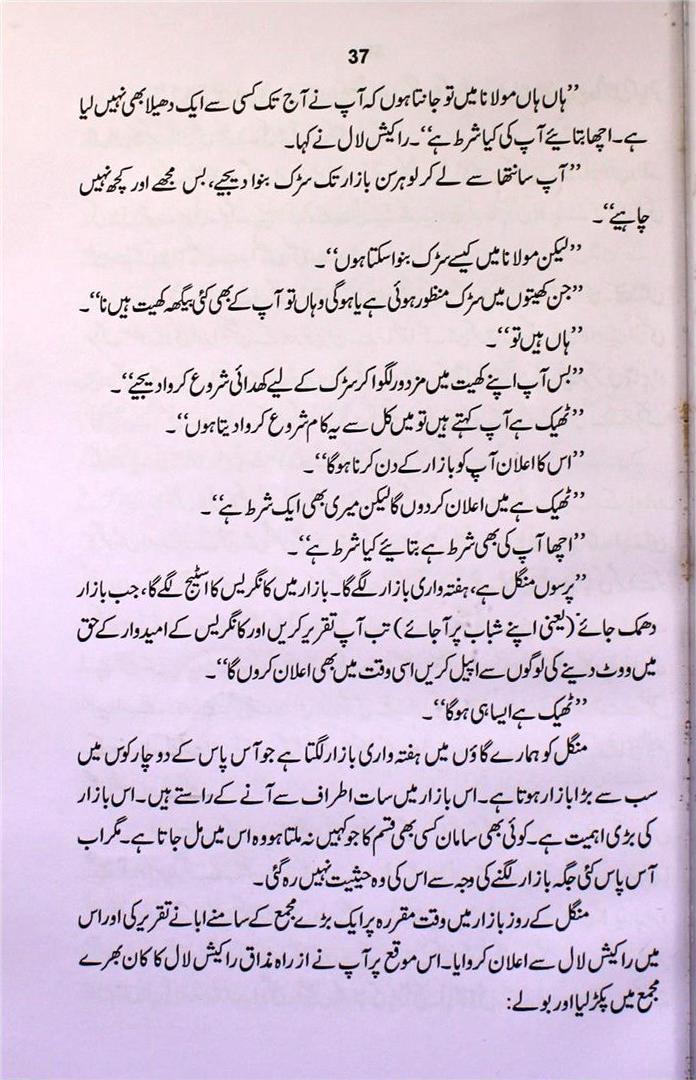 37
”ہاں ہاں مولانا میں تو جانتا ہوں کہ آپ نے آج تک کسی سے ایک دھیلا بھی نہیں لیا
ہے۔ اچھا بتائیے آپ کی کیا شرط ہے‘‘۔ راکیش لال نے کہا۔
’’آپ سانتھا سے لے کر لوہرسن بازار تک سڑک بنوا دیجیے، بس مجھے اور کچھ نہیں
چاہیے‘‘۔
’’لیکن مولانا میں کیسے سڑک بنوا سکتا ہوں‘‘۔
’’جن کھیتوں میں سڑک منظور ہوئی ہے یا ہوگی وہاں تو آپ کے بھی کئی بیگھہ کھیت ہیں نا‘‘۔
’’ہاں ہیں تو‘‘۔
’’بس آپ اپنے کھیت میں مزدور لگوا کر سڑک کے لیے کھدائی شروع کروا دیجیے‘‘۔
’’ٹھیک ہے آپ کہتے ہیں تو میں کل سے یہ کام شروع کروا دیتا ہوں‘‘۔
’’اس کا اعلان آپ کو بازار کے دن کرنا ہوگا‘‘۔
’’ٹھیک ہے میں اعلان کردوں گا لیکن میری بھی ایک شرط ہے‘‘۔
’’اچھا آپ کی بھی شرط ہے بتائیے کیا شرط ہے‘‘۔
’’پرسوں منگل ہے، ہفتہ واری بازار لگے گا۔ بازار میں کانگریس کا اسٹیج لگے گا، جب بازار
دھمک جائے (یعنی اپنے شباب پر آجائے) تب آپ تقریر کریں اور کانگریس کے امیدوار کے حق
میں ووٹ دینے کی لوگوں سے اپیل کریں اسی وقت میں بھی اعلان کروں گا‘‘۔
’’ٹھیک ہے ایسا ہی ہوگا‘‘۔
منگل کو ہمارے گاؤں میں ہفتہ واری بازار لگتا ہے جو آس پاس کے دو چار کوس میں
سب سے بڑا بازار ہوتا ہے۔ اس بازار میں سات اطراف سے آنے کے راستے ہیں۔ اس بازار
کی بڑی اہمیت ہے۔ کوئی بھی سامان کسی بھی قسم کا جو کہیں نہ ملتا ہو وہ اس میں مل جاتا ہے۔ مگر اب
آس پاس کئی جگہ بازار لگنے کی وجہ سے اس کی وہ حیثیت نہیں رہ گئی۔
منگل کے روز بازار میں وقت مقررہ پر ایک بڑے مجمع کے سامنے ابا نے تقریر کی اور اس
میں راکیش لال سے اعلان کروایا۔ اس موقع پر آپ نے از راہ مذاق راکیش لال کا کان بھرے
مجمع میں پکڑ لیا اور بولے: